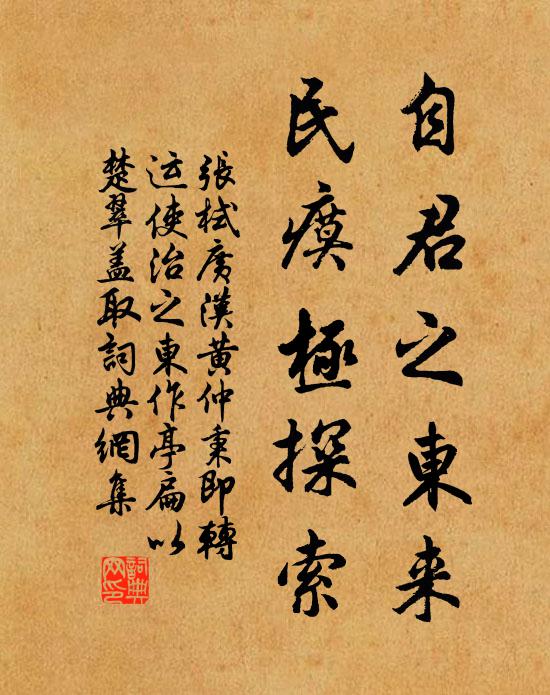 自君之東来
民瘼極探索
張栻廣漢黄仲秉即轉
运使治之東作亭扁以
楚翠盖取詞典網集
詞典网印